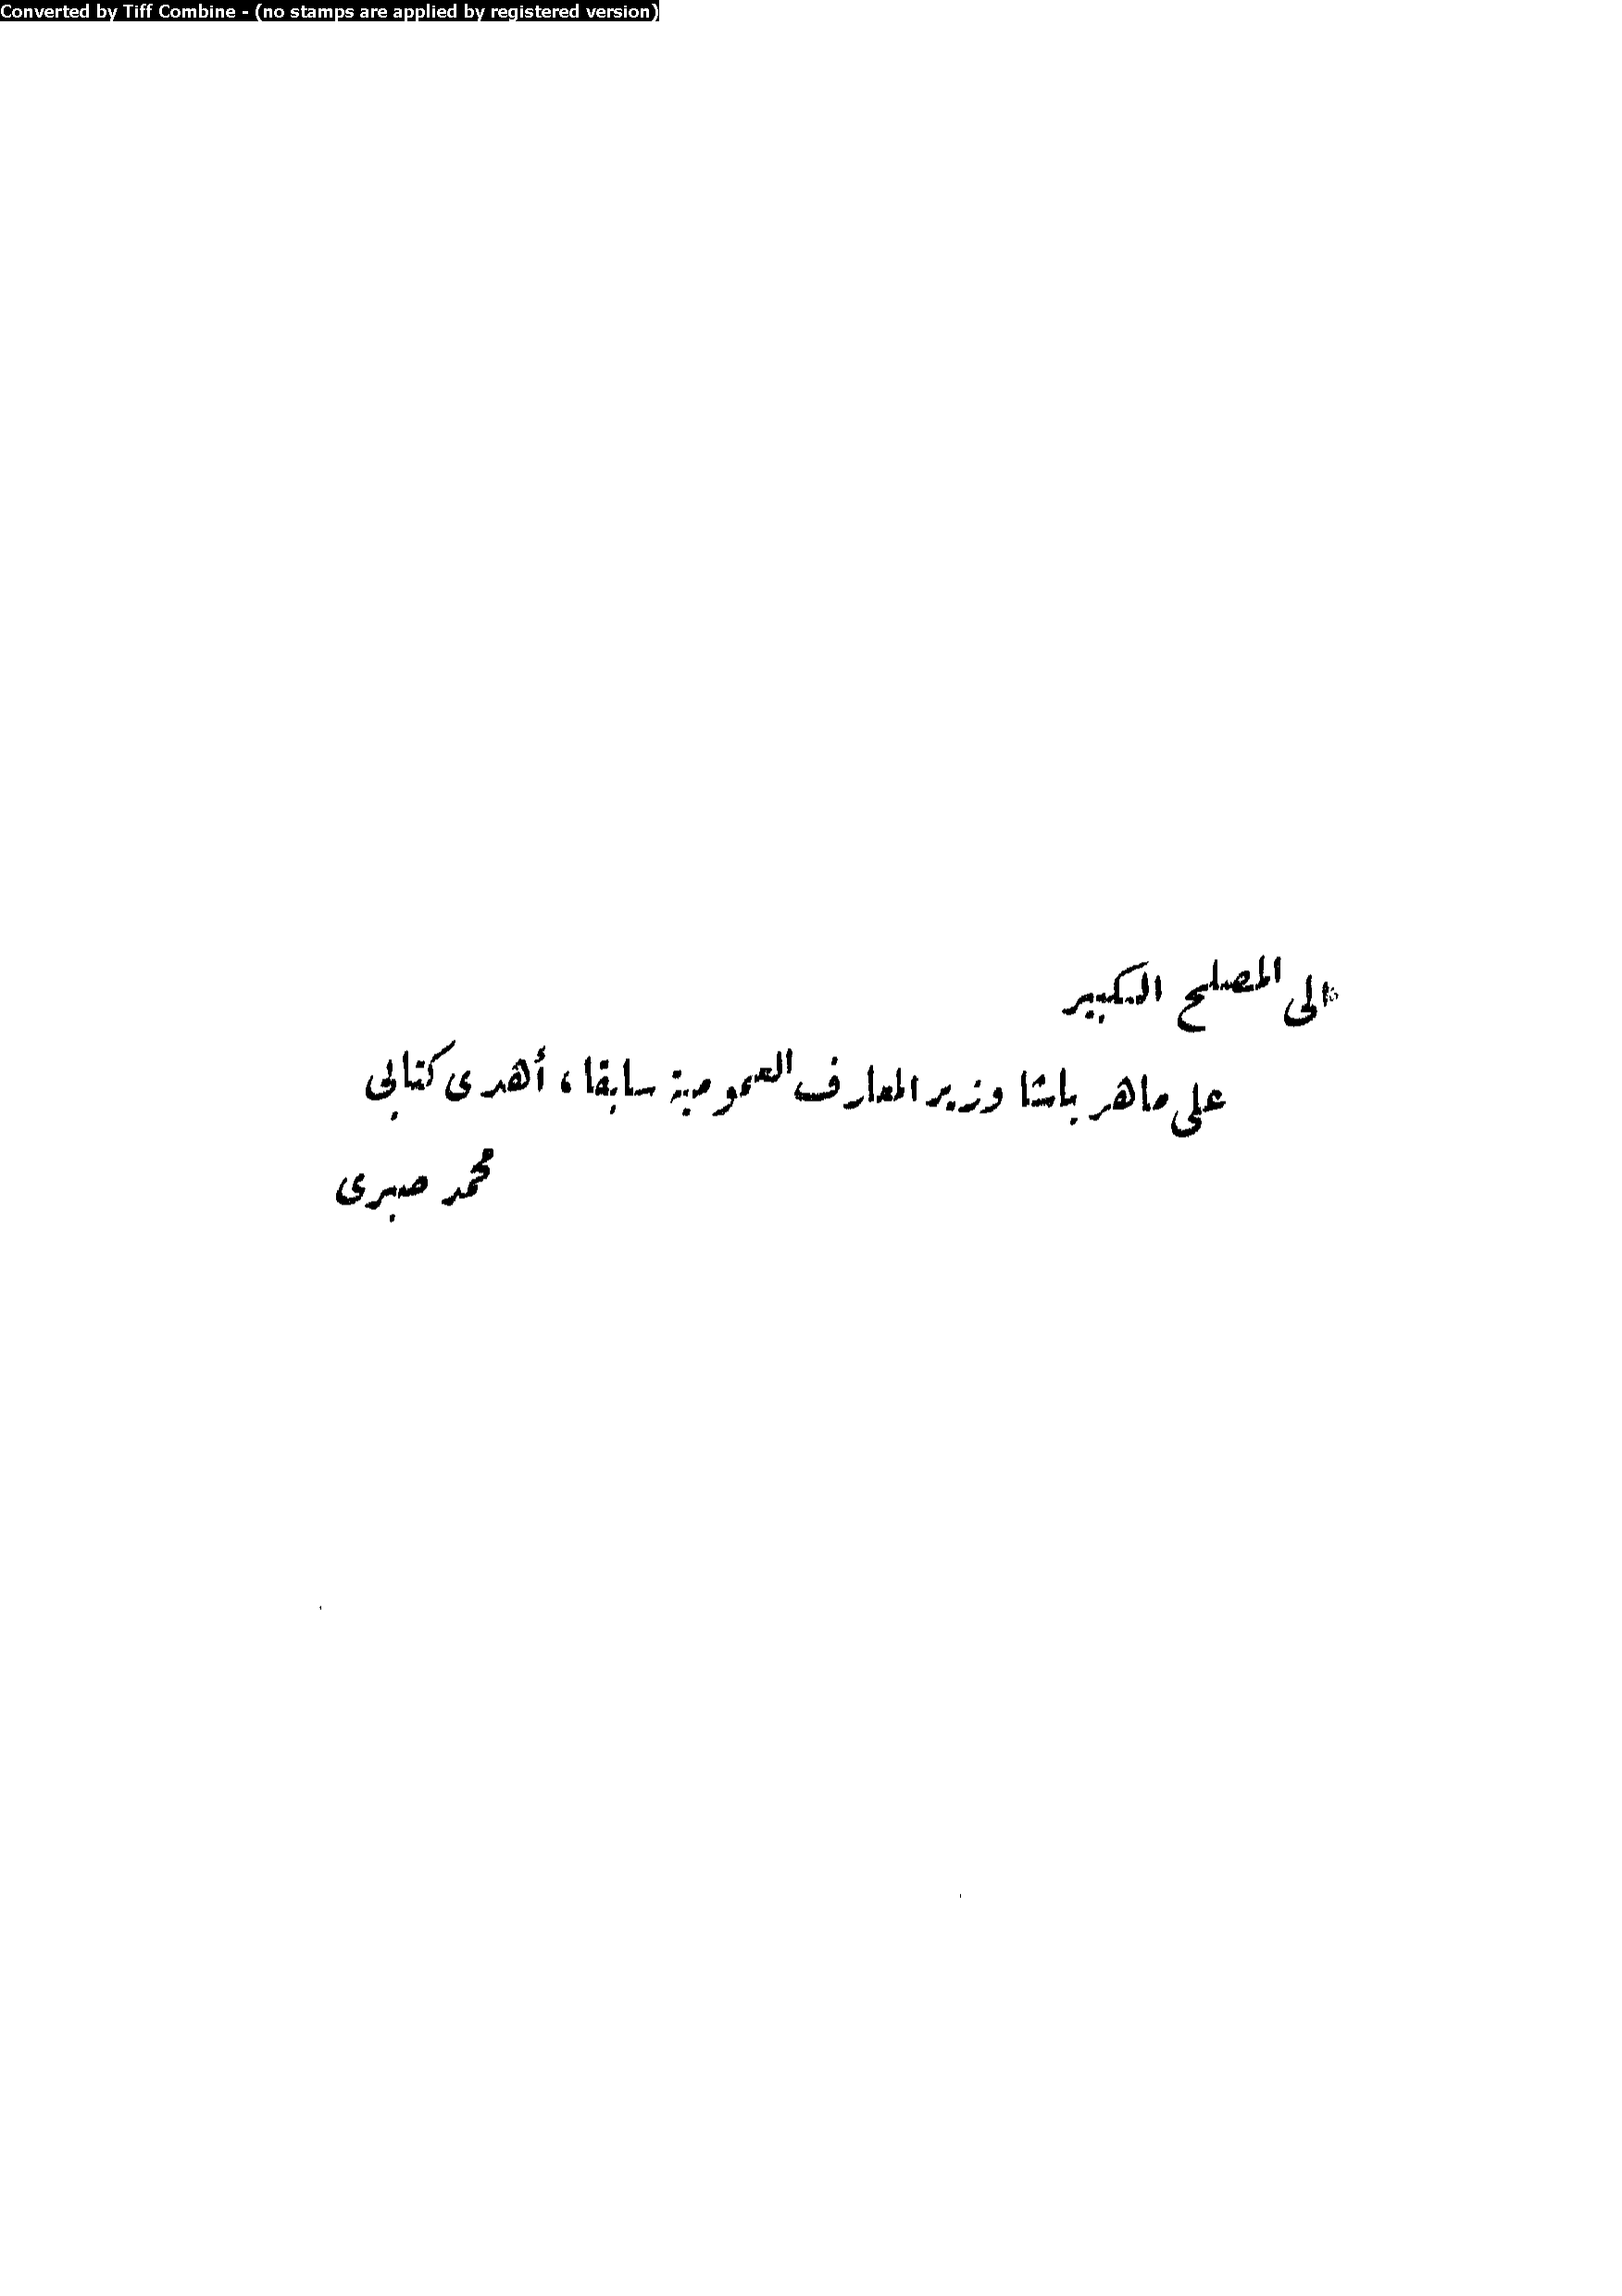 Converted by Tiff Combine - (no stamps are applied by registered version)
الى المصلح الكبير
على ماهر باشا وزير المعارف العمومية سابقا، أهدى كتابى
محمد صبرى